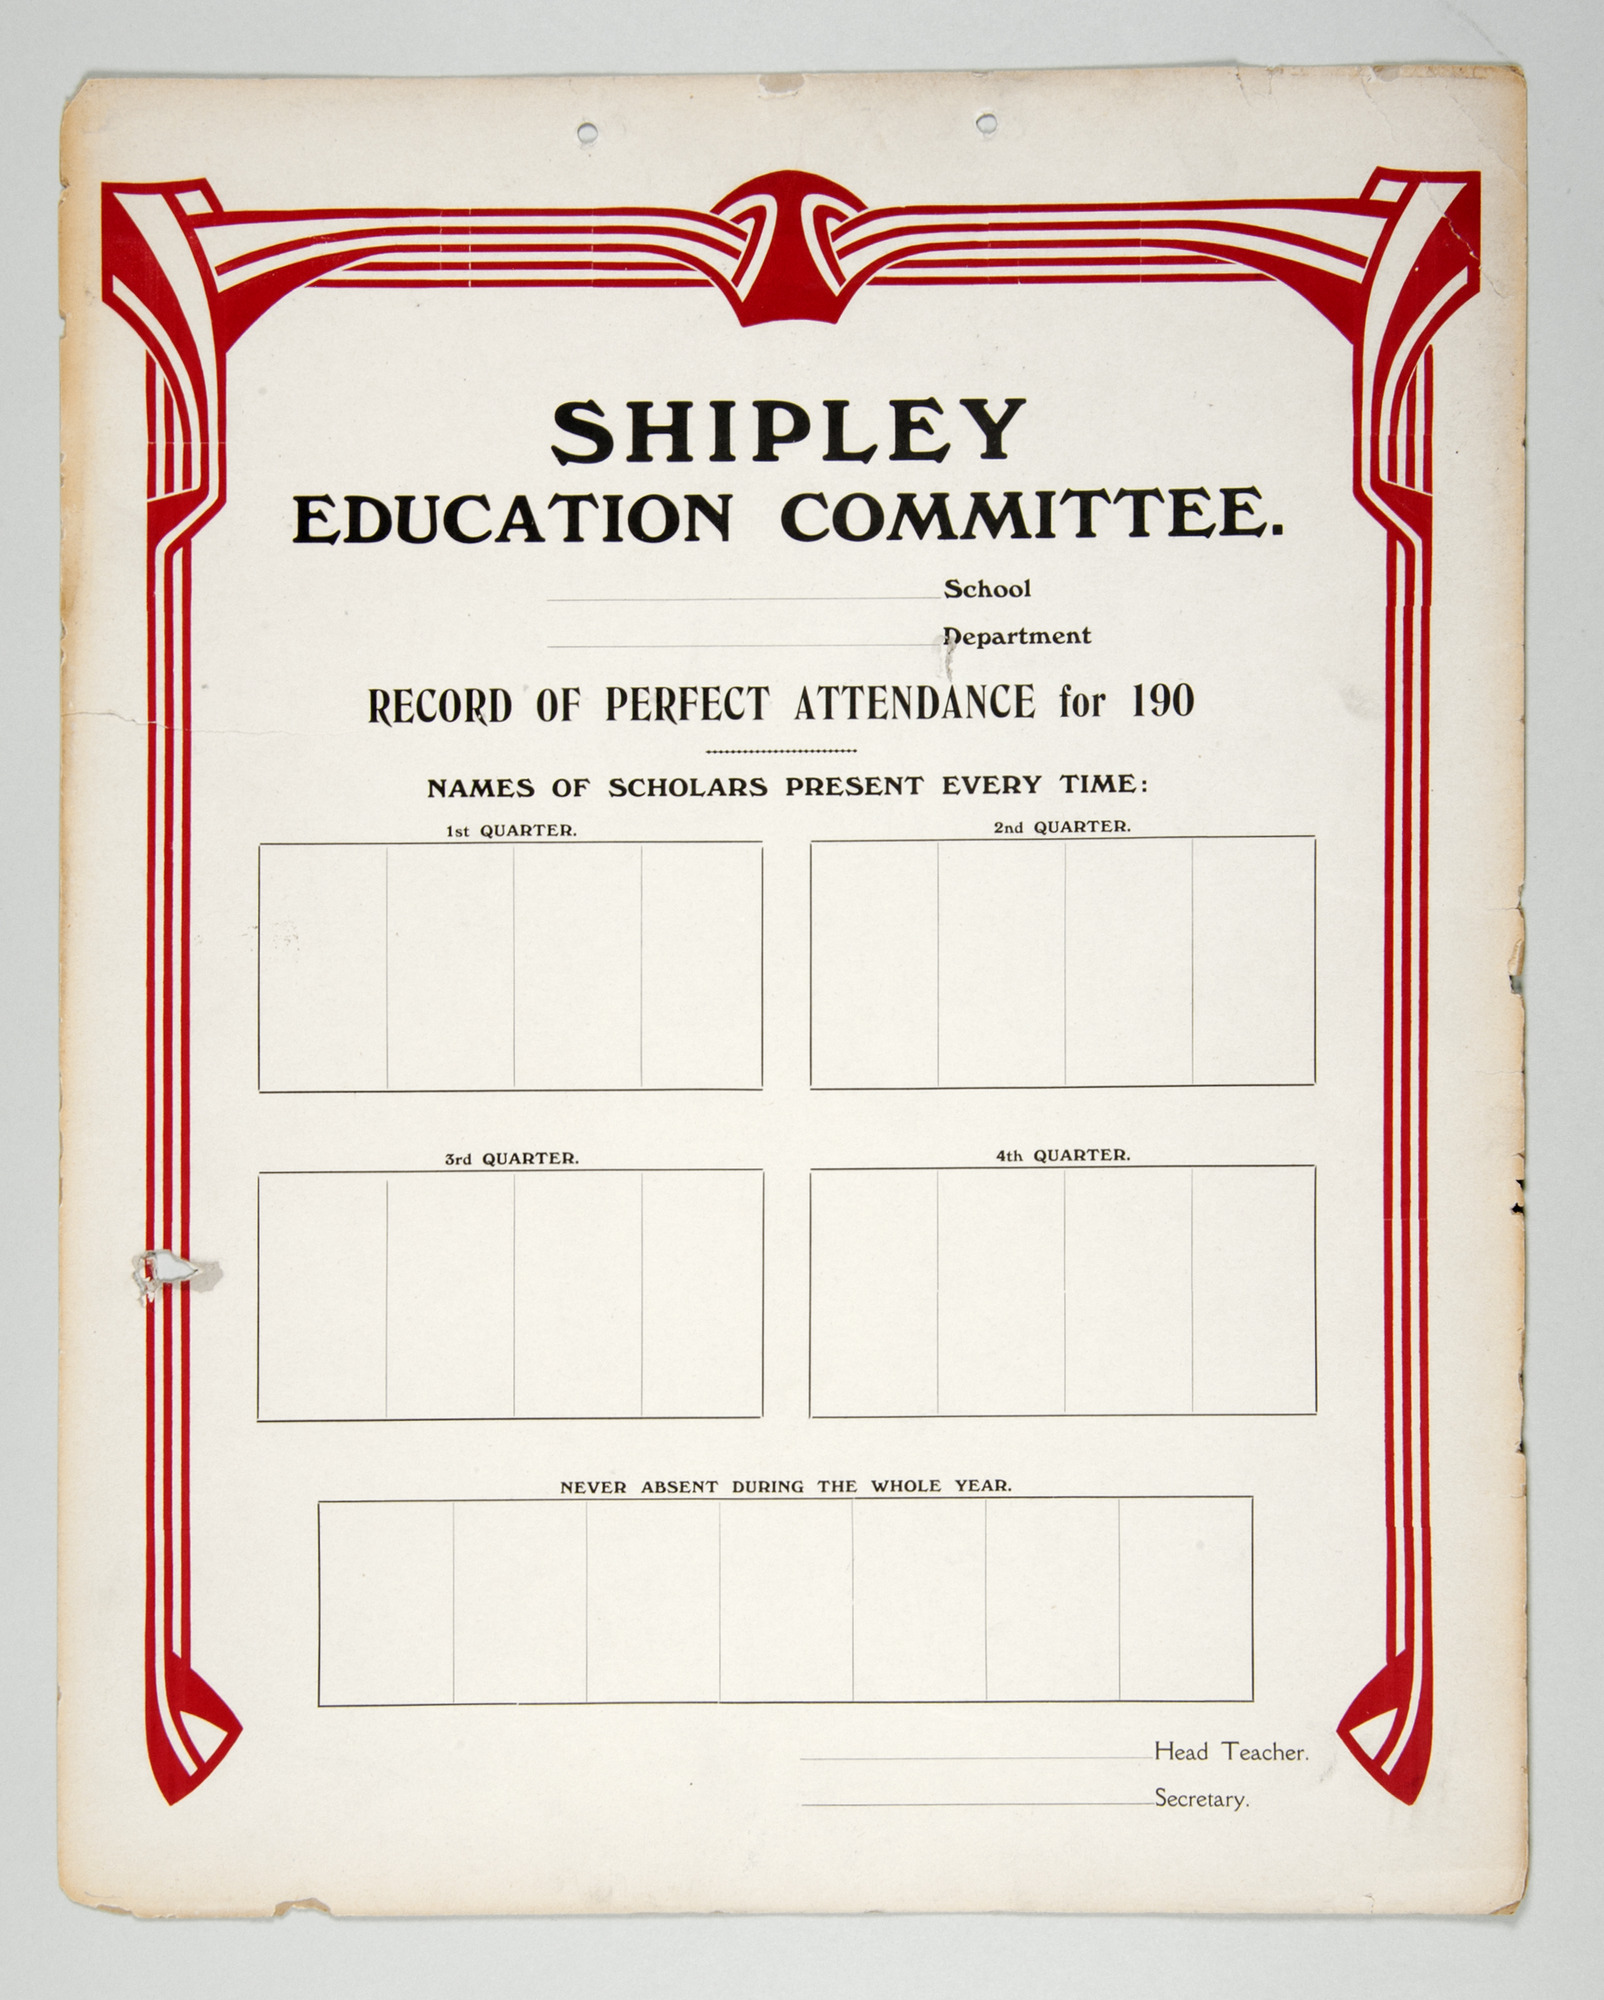 SHIPLEY
EDUCATION COMMITTEE.
School
Department
RECORD OF PERFECT ATTENDANCE for 190
NAMES OF SCHOLARS PRESENT EVERY TIME:
1st QUARTER.
2nd QUARTER.
3rd QUARTER.
4th QUARTER.
NEVER ABSENT DURING THE WHOLE YEAR.
Head Teacher.
Secretary.